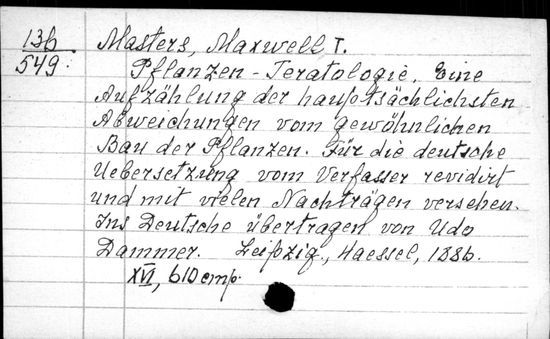 13b Masters, Maxwell T.
549. Pflanzen-Teratologie. Eine
Aufzählung der hauptsächlichsten
Abweichungen vom gewöhnlichen
Bau der Pflanzen. Für die deutsche
Uebersetzung vom Verfasser revidirt
und mit vielen Nachträgen versehen.
Ins Deutsche übertragen von Udo
Dammer. Leipzig, Haessel, 1886.
XVI, 610 стр.